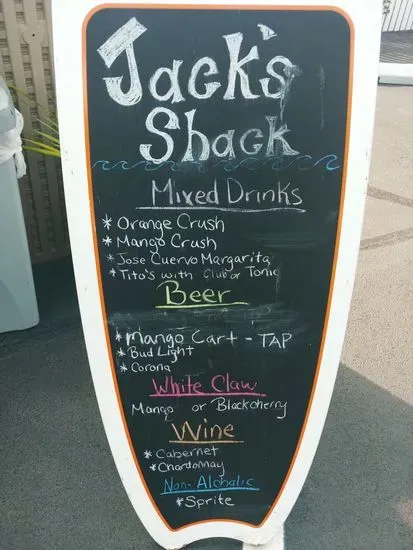 Jack's
Shack
Mixed Drinks
* Orange Crush
* Mango Crush
* Jose Cuervo Margarita
* Tito's with Club or Tonic
Beer
* Mango Cart - TAP
* Bud Light
* Corona
White Claw
Mango or Blackcherry
Wine
* Cabernet
* Chardonnay
Non-Alcholic
* Sprite